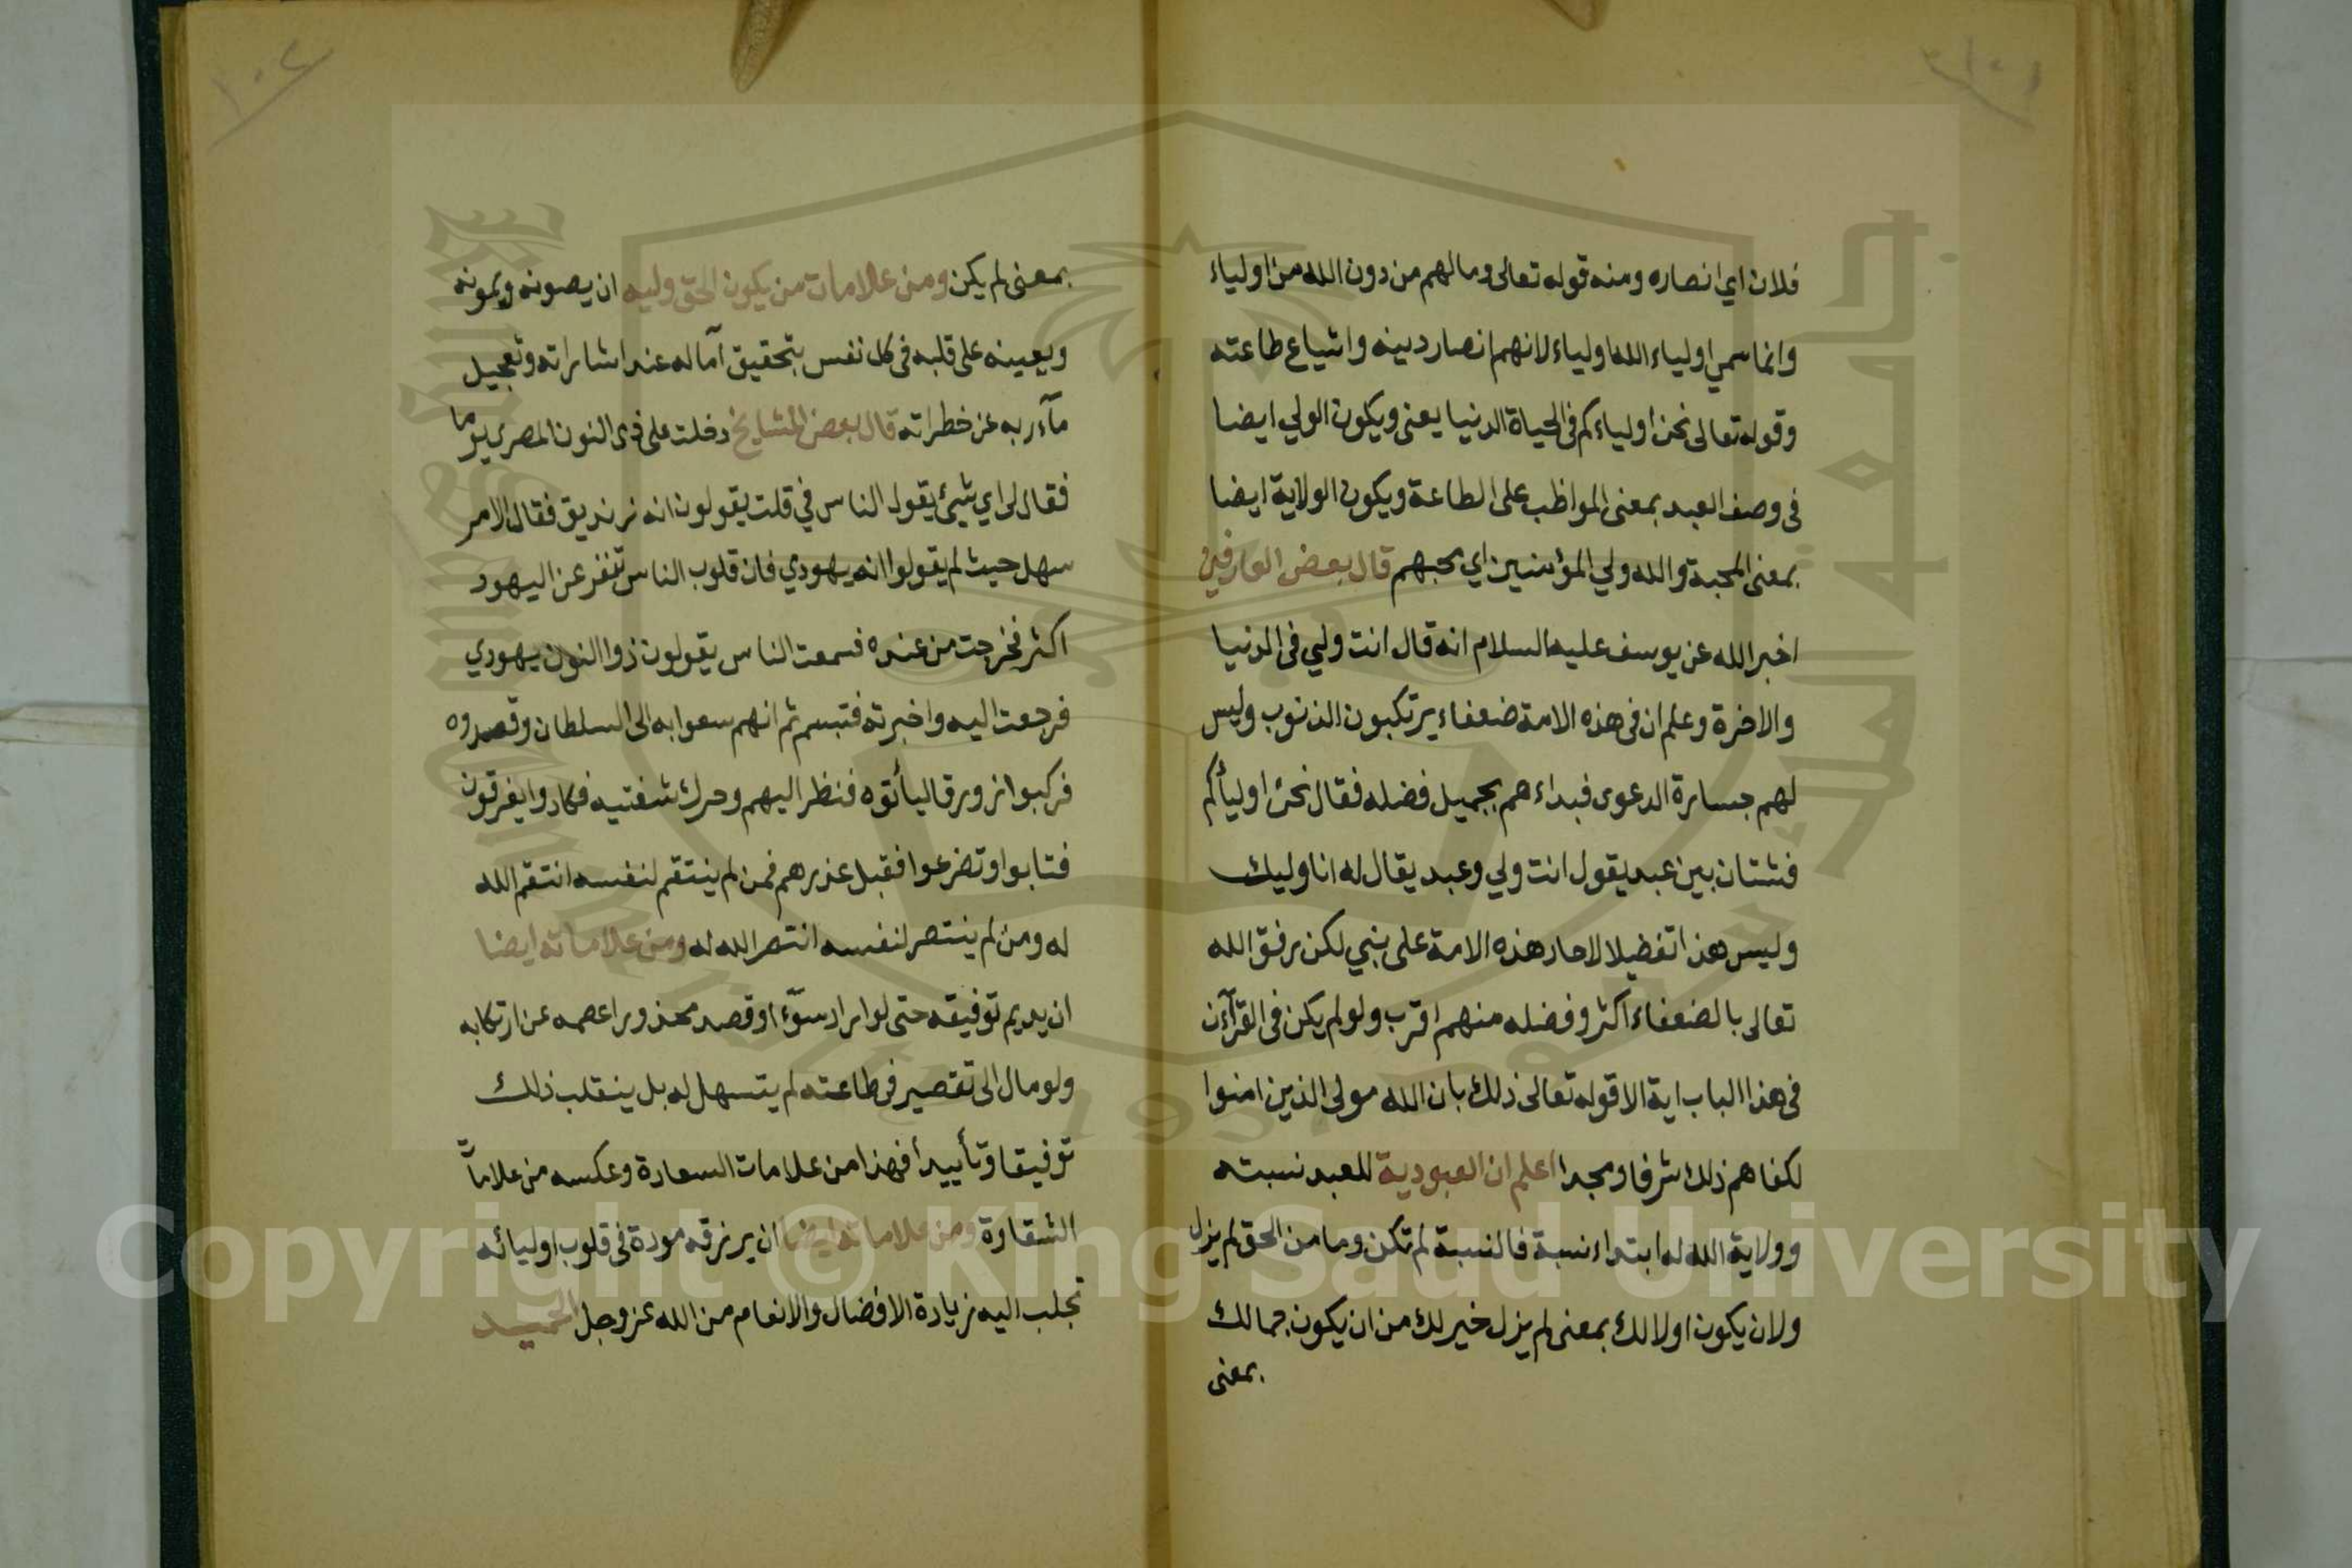 فلان اي انصاره ومنه قوله تعالى وما لهم من دون الله من اولياء
وانما سمي اولياء الله اولياء لانهم انصار دينه واشياع طاعته
وقوله تعالى نحن اولياءكم فى الحياة الدنيا يعنى ويكون الولي ايضا
فى وصف العبد بمعنى المواظب على الطاعة ويكون الولاية ايضا
بمعنى المحبة والله ولي المؤمنين اي يحبهم قال بعض العارفين
اخبر الله عن يوسف عليه السلام انه قال انت ولي فى الدنيا
والاخرة وعلم ان فى هذه الامة ضعفاء يرتكبون الذنوب وليس
لهم جسارة الدعوى فبداءهم بجميل فضله فقال نحن اوليأكم
فشتان بين عبد يقول انت ولي وعبد يقال له انا وليك
وليس هذا تفضيلا لاحاد هذه الامة على نبي لكن رفق الله
تعالى بالضعفاء اكثر وفضله منهم اقرب ولو لم يكن فى القرآن
فى هذا الباب اية الا قوله تعالى ذلك بان الله مولى الذين امنوا
لكفاهم ذلك شرفا ومجدا اعلم ان العبودية للعبد نسبته
وولاية الله له ابتداء نسبة فالنسبة لم تكن وما من الحق لم يزل
ولان يكون اولا لك بمعنى لم يزل خير لك من ان يكون جمالك
بمعنى
١٠٢
بمعنى لم يكن ومن علامات من يكون الحق وليه ان يصونه ويمونه
ويعينه على قلبه فى كل نفس بتحقيق آماله عند اشاراته وتعجيل
مآربه عن خطراته قال بعض المشايخ دخلت على ذى النون المصري يوما
فقال لى اي شيئ يقول الناس في قلت يقولون انه زنديق فقال الامر
سهل حيث لم يقولوا انه يهودي فان قلوب الناس تنفر عن اليهود
اكثر فخرجت من عنده فسمعت الناس يقولون ذوا النون يهودي
فرجعت اليه واخبرته فتبسم ثم انهم سعوا به الى السلطان وقصدوه
فركبوا زورقا ليأتوه فنظر اليهم وحرك شفتيه فكادوا يغرقون
فتابوا وتضرعوا فقبل عذرهم فمن لم ينتقم لنفسه انتقم الله
له ومن لم ينتصر لنفسه انتصر الله له ومن علاماته ايضا
ان يديم توفيقه حتى لو اراد سوٓء او قصد محذورا عصمه عن ارتكابه
ولو مال الى تقصير فى طاعته لم يتسهل له بل ينقلب ذلك
توفيقا وتأييدا فهذا من علامات السعادة وعكسه من علامآت
الشقاوة ومن علاماته ايضا ان يرزقه مودة فى قلوب اوليائه
تجلب اليه زيادة الافضال والانعام من الله عز وجل الحميد
Copyright © King Saud University
1957